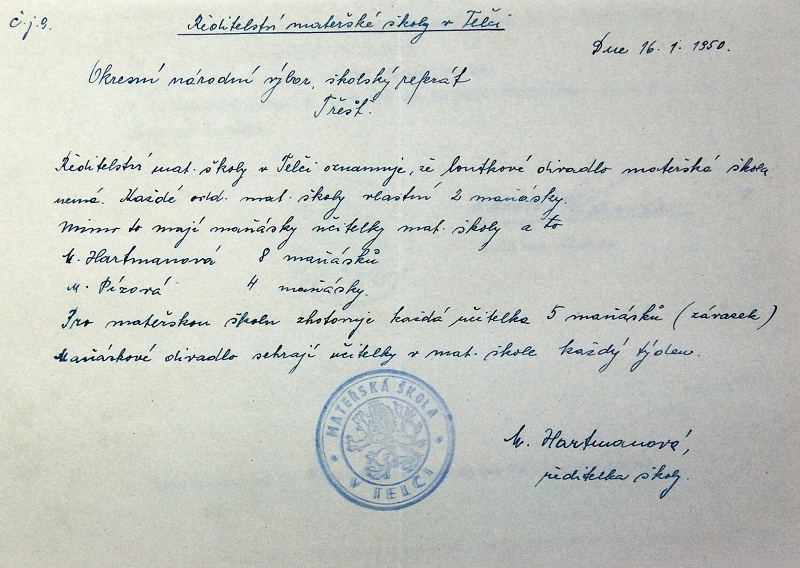 Č. j. 9.
Ředitelství mateřské školy v Telči
Dne 16. 1. 1950.
Okresní národní výbor, školský referát
Třešť.
Ředitelství mat. školy v Telči oznamuje, že loutkové divadlo mateřská škola
nemá. Každé odd. mat. školy vlastní 2 maňásky.
Mimo to mají maňásky učitelky mat. školy a to
M. Hartmanová 8 maňásků
M. Pízová 4 maňásky.
Pro mateřskou školu zhotovuje každá učitelka 5 maňásků (závazek)
Maňáskové divadlo sehrají učitelky v mat. škole každý týden.
MATEŘSKÁ ŠKOLA
V TELČI
M. Hartmanová,
ředitelka školy.